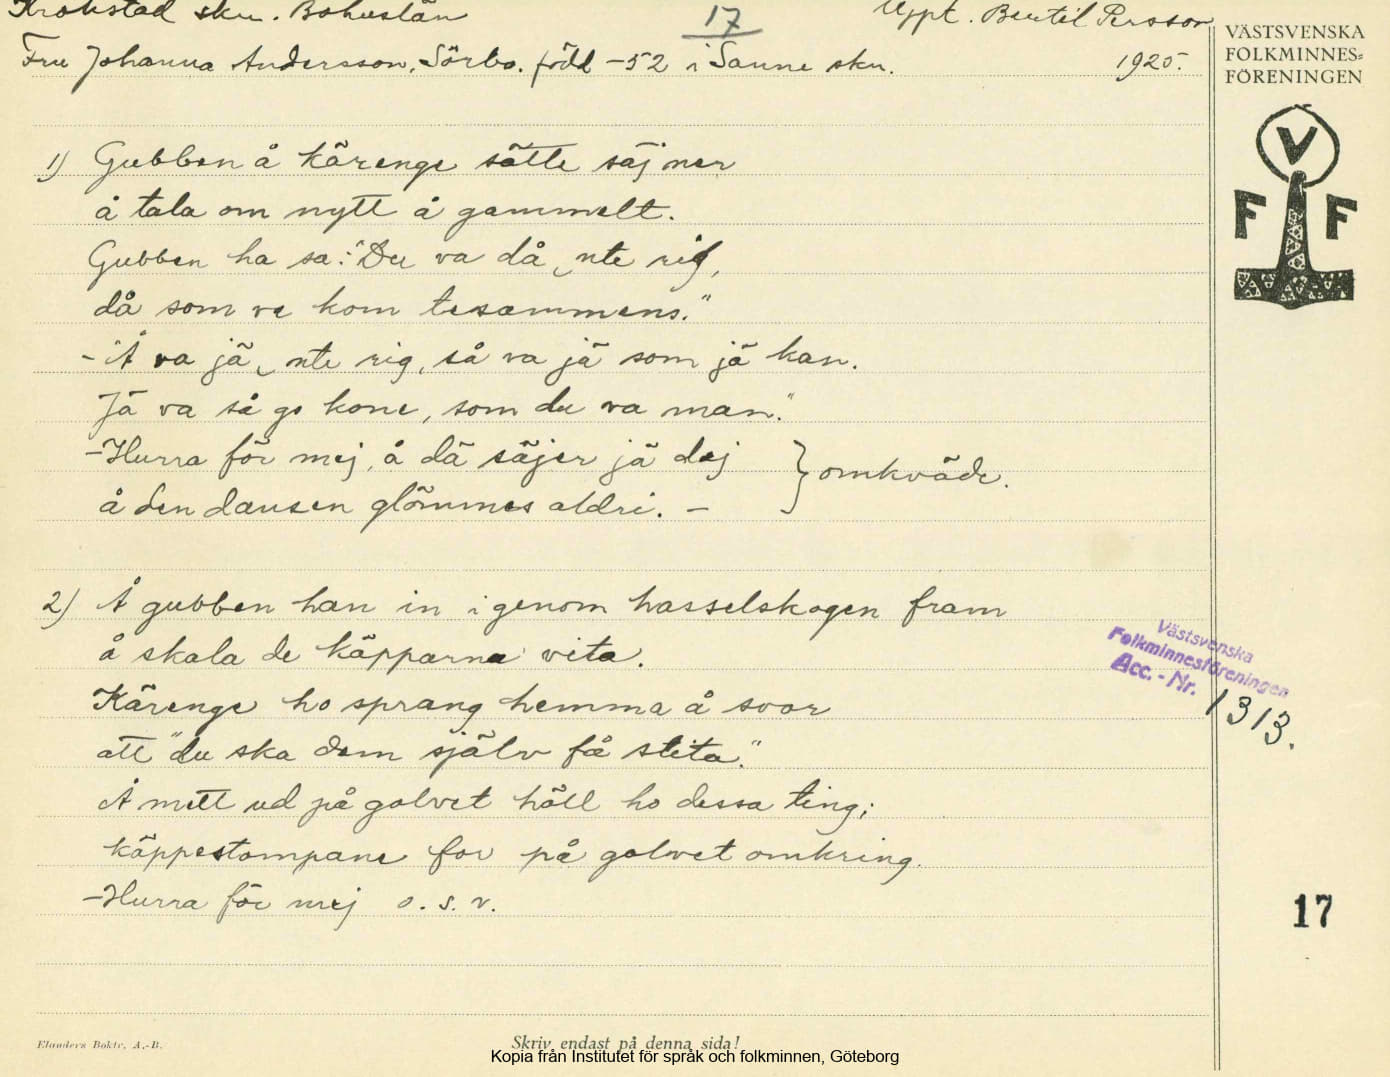 Krokstad skn. Bohuslän
17
Uppt. Bertil Persson
Fru Johanna Andersson, Sörbo. född -52 i Sanne skn.
1925.
VÄSTSVENSKA
FOLKMINNES=
FÖRENINGEN
V
F F
1) Gubben å kärenge sätte säj ner
å tala om nytt å gammelt.
Gubben ha sa: "Du va då nte rig,
då som ve kom tesammens."
- "Å va jä nte rig, så va jä som jä kan.
Jä va så go kone, som du va man."
- Hurra för mej, å dä säjer jä dej
å den dansen glömmes aldri. -
} omkväde.
2) Å gubben han in igenom hasselskogen fram
å skala de käpparna vita.
Kärenge ho sprang hemma å svor
att "du ska dem själv få slita."
Å mitt ud på golvet höll ho dessa ting;
käppestompane for på golvet omkring.
- Hurra för mej o. s. v.
Västsvenska
Folkminnesföreningen
Acc. - Nr. 1313.
17
Elanders Boktr. A.-B.
Skriv endast på denna sida!
Kopia från Institutet för språk och folkminnen, Göteborg